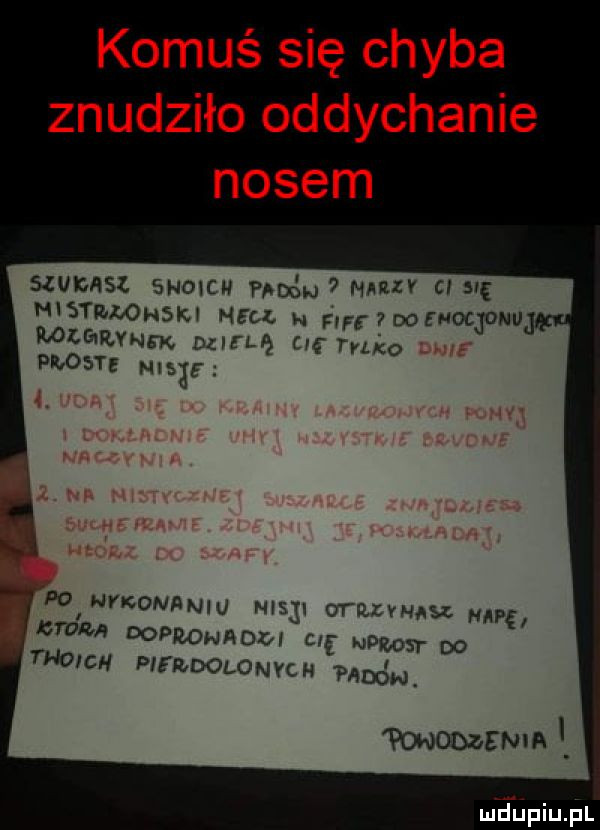 Komuś się chyba
znudziło oddychanie
nosem
SZUKASZ SWOICH PADÓW? MARZY CI SIĘ
MISTRZOWSKI MECZ W FIFE? DO EMOCJONUJĄCYCH
ROZGRYWEK DZIELĄ CIĘ TYLKO DWIE
PROSTE MISJE:
1. UDAJ SIĘ DO KRAINY LAZUROWYCH POMYJ
I DOKŁADNIE UMYJ WSZYSTKIE BRUDNE
NACZYNIA.
2. NA MISTYCZNEJ SUSZARCE ZNAJDZIESZ
SUCHE PRANIE. ZDEJMIJ JE, POSKŁADAJ,
WŁÓRZ DO SZAFY.
PO WYKONANIU MISJI OTRZYMASZ MAPĘ,
KTÓRA DOPROWADZI CIĘ WPROST DO
TWOICH PIERDOLONYCH PADÓW.
POWODZENIA!
mdupiu.pl